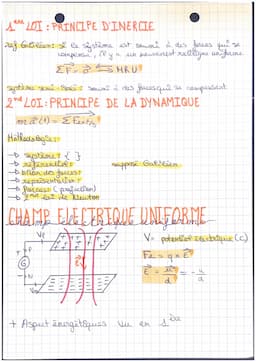 1ère LOI : PRINCIPE D'INERCIE
ref Galiléen : si le système est soumis à des forces qui se
compensent, il y a un mouvement rectiligne uniforme
ΣF = 0 ⟺ MRU
système : soumis à des forces qui se compensent
2nd LOI : PRINCIPE DE LA DYNAMIQUE
m a(t) = Σ Fext/s
Méthodologie :
→ système : { }
→ référentiel : supposé Galiléen
→ bilan des forces :
→ représentation :
→ forces (projection)
→ 2nd loi de Newton
CHAMP ELECTRIQUE UNIFORME
V = potentiel électrique
Fe = q × E
E = = - u/d
+ Aspect énergétiques vu en 1